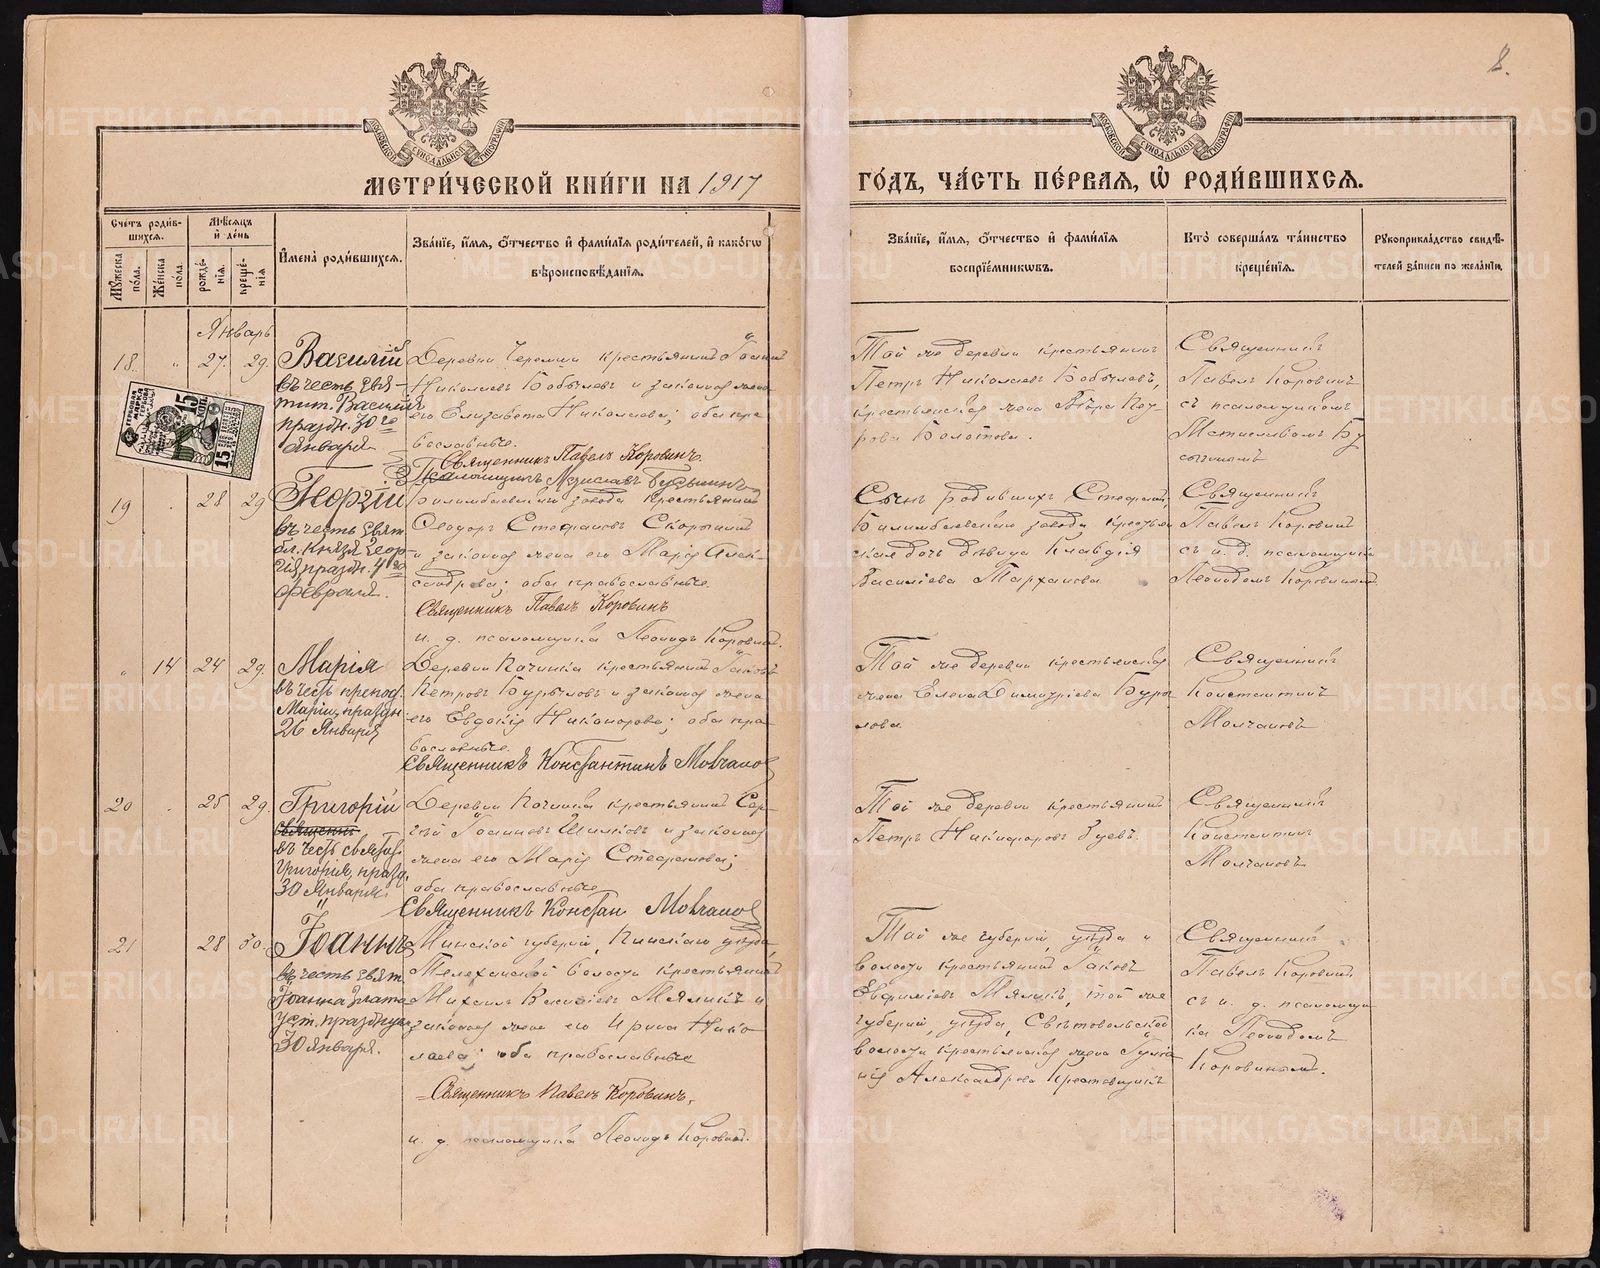 8.
МОСКОВСКОЙ СѴНОДАЛЬНОЙ ТИПОГРАФІИ
МОСКОВСКОЙ СѴНОДАЛЬНОЙ ТИПОГРАФІИ
МЕТРИ́ЧЕСКОЙ КНИ́ГИ НА 1917 ГО́ДЪ, ЧА́СТЬ ПЕ́РВАЯ, Ѡ҆ РОДИ́ВШИХСЯ.
Счетъ роди́в-
шихся.
Мѣсяцъ
и҆ де́нь
Мꙋжеска по́ла.
Же́нска по́ла.
рожде́нія.
креще́нія
И҆мена̀ роди́вшихся.
Зва́нїе, и҆́мя, ѻ҆́тчество и҆ фами́лїя роди́телей, и҆ како́гѡ
вѣроисповѣ́данїя.
Зва́нїе, и҆́мя, ѻ҆́тчество и҆ фами́лїя
воспрїе́мникѡвъ.
Кто̀ соверша́лъ та́инство
креще́нїя.
Рꙋкоприкла́дство свидѣ́-
телей за́писи по жела́нїю.
Январь
18. " 27. 29.
Василій
въ честь Свя-
тит. Василія
праздн. 30го
Января
Деревни Черемши крестьянинъ Іоаннъ
Николаевъ Бобылевъ и законная жена
его Елизавета Николаева; оба пра
вославные.
Священникъ Павелъ Коровинъ.
Псаломщикъ Мстиславъ
Той же деревни крестьянинъ
Петръ Николаевъ Бобылевъ,
крестьянская жена
Болотова.
Священникъ
Павелъ Коровинъ
съ псаломщикомъ
Мстиславомъ
15 КОП.
15
19 28 29
Георгій
въ честь Свят
бл. Князя Геор-
гія, праздн. 4го
Февраля.
Билимбаевскаго завода крестьянинъ
Ѳеодоръ Стефановъ
и законная жена его Марія Алек-
сандрова; оба православные.
Священникъ Павелъ Коровинъ
и. д. псаломщика Леонидъ Коровинъ.
Сынъ родившихъ Стефанъ,
Билимбаевскаго завода крестьян
ская дочь дѣвица Клавдія
Васильева Тарханова
Священникъ
Павелъ Коровинъ
съ и. д. псаломщика
Леонидомъ Коровинымъ
" 14 24 29.
Марія
въ честь препод.
Маріи, праздн.
26 Января
Деревни Починка крестьянинъ Іаковъ
Петровъ Бурыловъ и законная жена
его Евдокія Никанорова; оба пра
вославные.
Священникъ Константинъ Молчановъ
Той же деревни крестьянская
жена Елена Димитріева Буры
лова
Священникъ
Константинъ
Молчановъ
20 25 29.
Григорій
въ честь святит.
Григорія, празд.
30 Января.
Деревни Починка крестьянинъ Сер-
гій Іоанновъ и законная
жена его Марія Стефанова;
оба православные
Священникъ Констан Молчановъ
Той же деревни крестьянинъ
Петръ Никифоровъ
Священникъ
Константинъ
Молчановъ
21 28 30.
Іоаннъ
въ честь Свят.
Іоанна Злато
уст. празднуем
30 Января.
Минской губерніи, Пинскаго уѣзда,
Телеханской волости крестьянинъ
Михаилъ Василіевъ Мяликъ и
законная жена его Ирина Нико
лаева; оба православные
Священникъ Павелъ Коровинъ.
и. д. псаломщика Леонидъ Коровинъ.
Той же губерніи, уѣзда и
волости крестьянинъ Іаковъ
Евфиміевъ Мяликъ, той же
губерніи, уѣзда,
волости крестьянская жена
Александрова
Священникъ
Павелъ Коровинъ
съ и. д. псаломщи
ка Леонидомъ
Коровинымъ.
METRIKI.GASO-URAL.RU